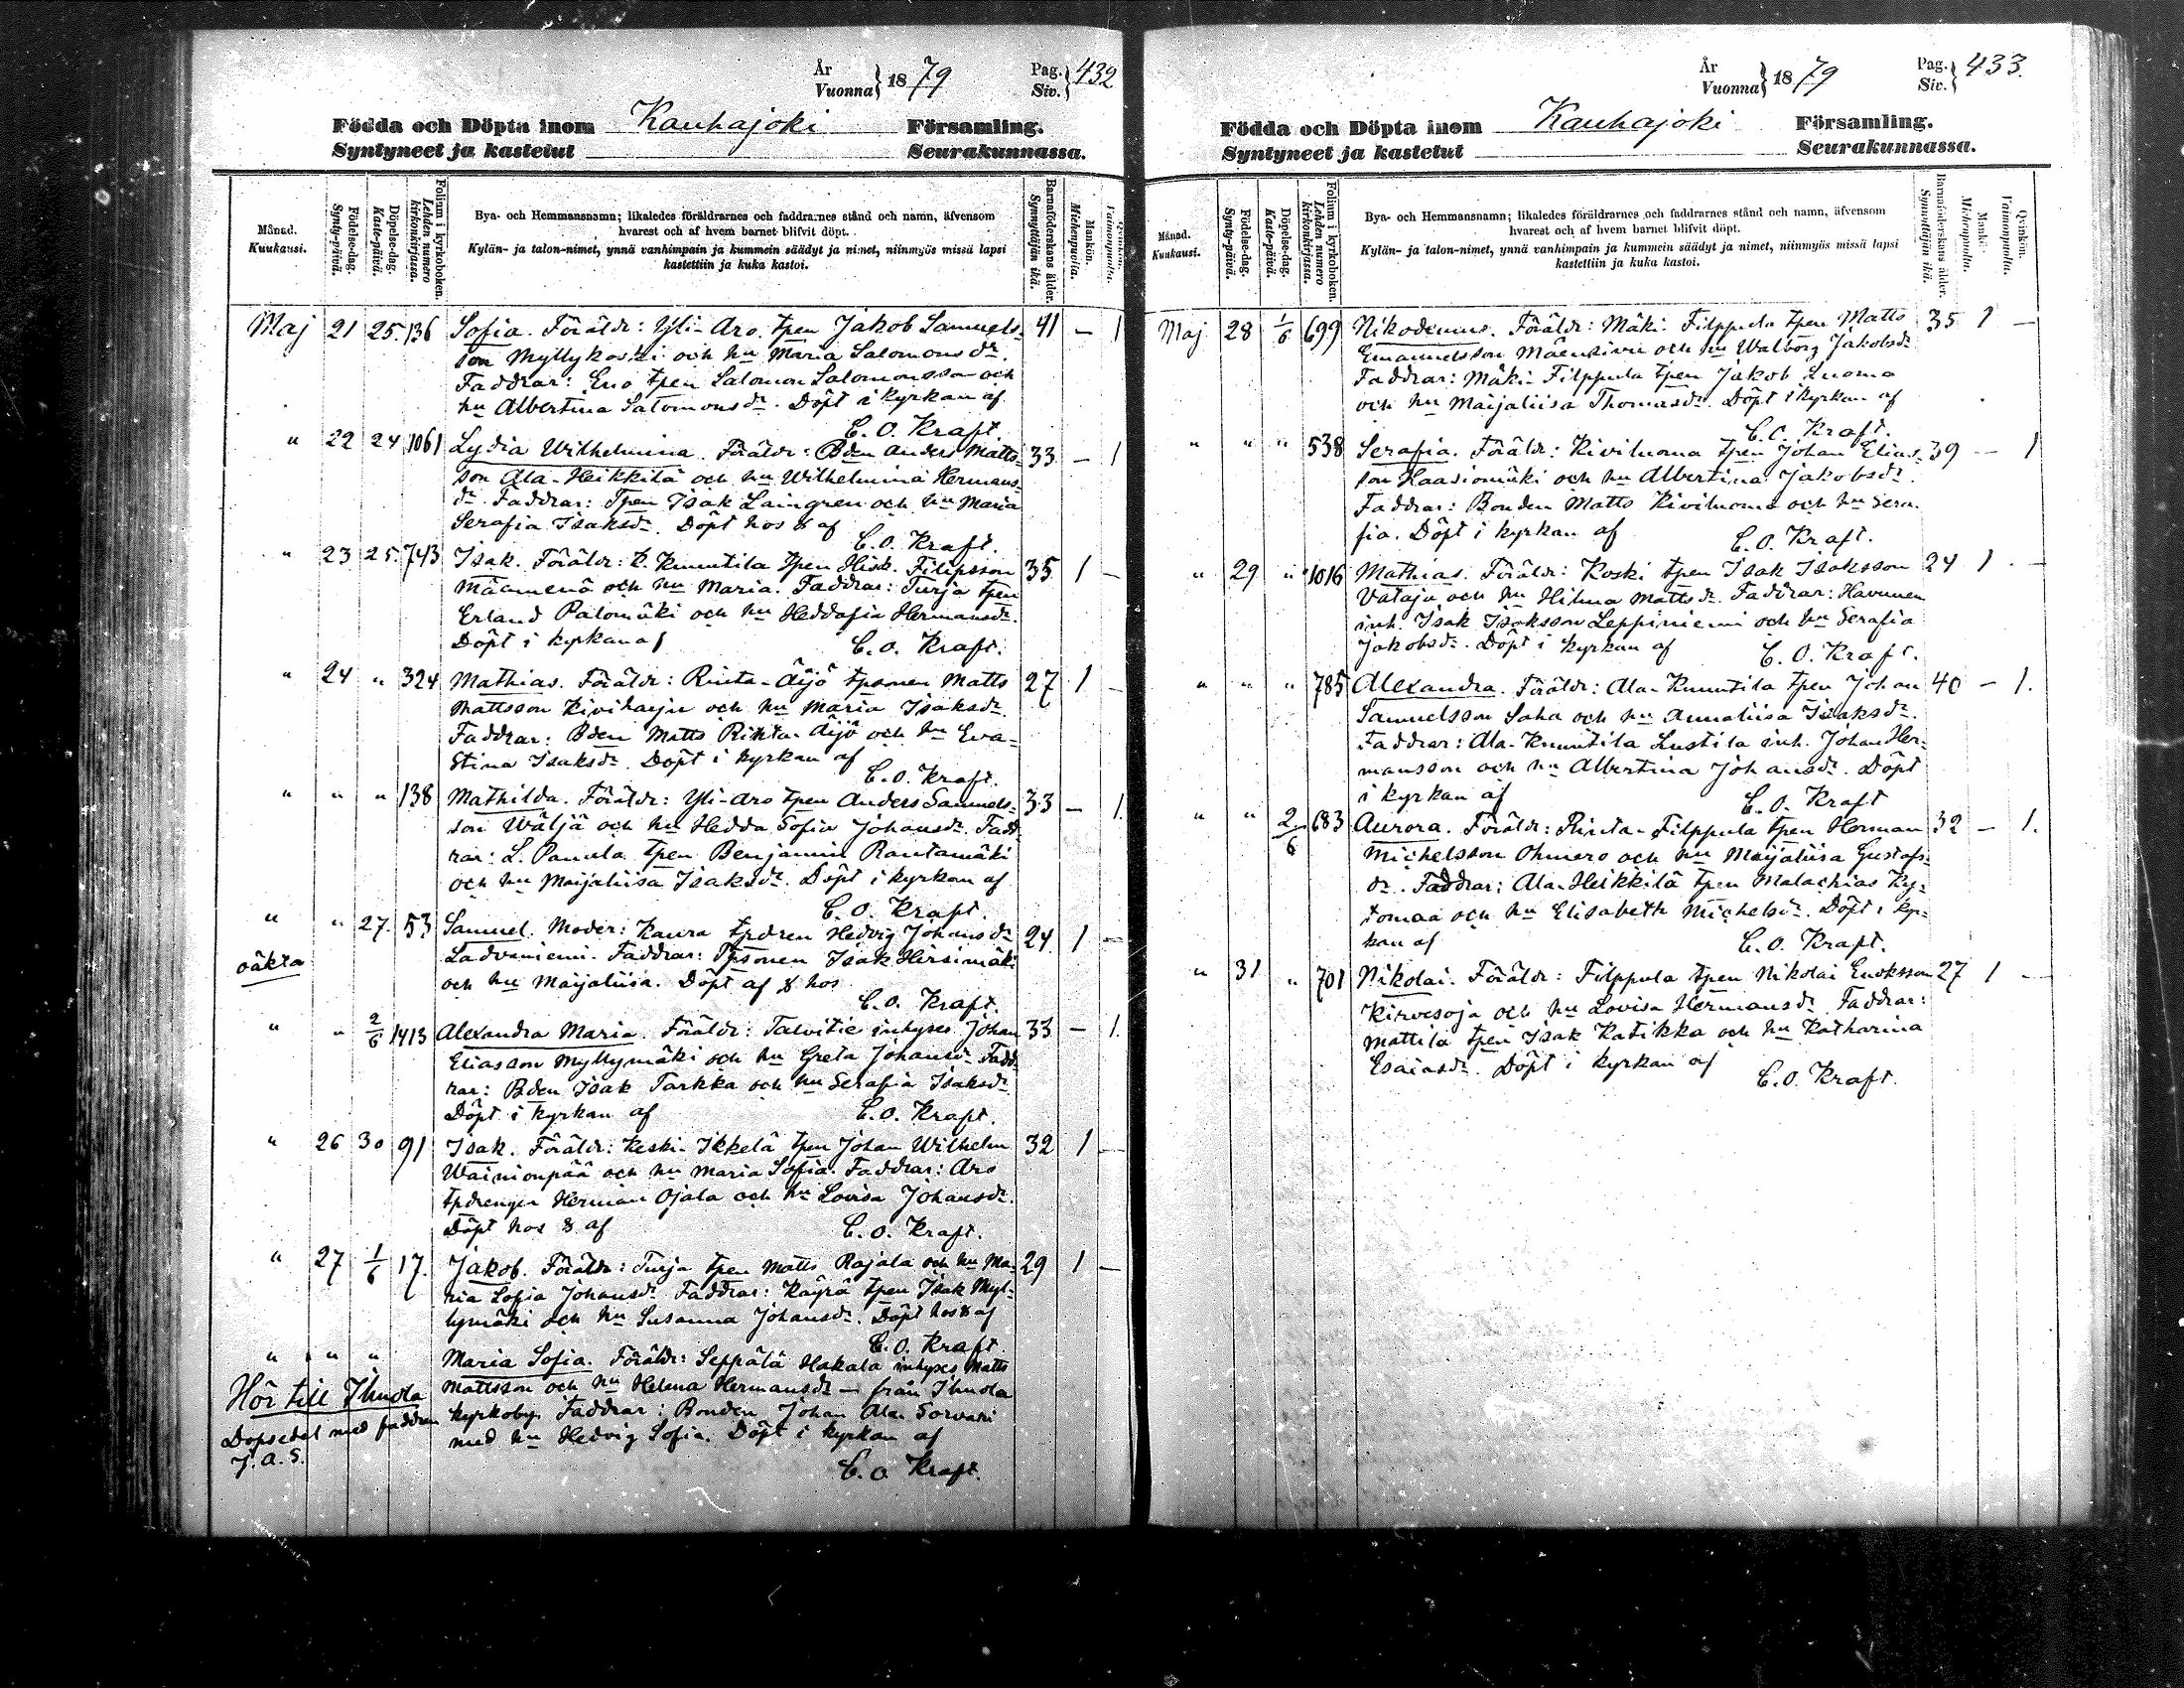 År
Vuonna } 1879 Pag.
Siv. } 432
Födda och Döpta inom Kauhajoki Församling.
Syntyneet ja kastetut Seurakunnassa.
Månad.
Kuukausi.
Födelse-dag.
Synty-päivä.
Döpelse-dag.
Kaste-päivä.
Folium i kyrkoboken.
Lehden numero
kirkonkirjassa.
Bya- och Hemmansnamn; likaledes föräldrarnes och faddrarnes stånd och namn, äfvensom
hvarest och af hvem barnet blifvit döpt.
Kylän- ja talon-nimet, ynnä vanhimpain ja kummein säädyt ja nimet, niinmyös missä lapsi
kastettiin ja kuka kastoi.
Barnaföderskans ålder.
Synnyttäjän ikä.
Mankön.
Miehenpuolia.
Vaimonpuolia.
Maj 21 25. 136 Sofia. Föräldr: Yli-Aro tpen Jakob Samuels- 41 — 1
son Myllykoski och hu Maria Salomonsdr.
Faddrar: Eno tpen Salomon Salomonsson och
hu Albertina Salomonsdr. Döpt i kyrkan af
C. O. Kraft.
" 22 24 1061 Lydia Wilhelmina. Föräldr: Bden Anders Matts- 33 — 1
son Ala-Heikkilä och hu Wilhelmina Hermans-
dr. Faddrar: Tpen Isak Laingren och hu Maria
Serafia Isaksdr. Döpt hos & af
C. O. Kraft.
" 23 25. 743 Isak. Föräldr: K. Knuutila tpen Hisk. Filipsson 35 1 —
Mäenenä och hu Maria. Faddrar: Turja tpen
Erland Palomäki och hu Heddafia Hermansdr.
Döpt i kyrkan af C. O. Kraft.
" 24 " 324 Mathias. Föräldr: Rinta-Äijö tpsonen Matts 27 1 —
Mattsson Kiviharju och hu Maria Isaksdr.
Faddrar: Bden Matts Rinta-Äijö och hu Eva-
Stina Isaksdr. Döpt i kyrkan af
C. O. Kraft.
" " " 138 Mathilda. Föräldr: Yli-Aro tpen Anders Samuels- 33 — 1.
son Wäljä och hu Hedda Sofia Johansdr. Fadd-
rar: L. Panula tpen Benjamin Rantamäki
och hu Maijaliisa Isaksdr. Döpt i kyrkan af
C. O. Kraft.
" " 27. 53 Samuel. Moder: Kaura tpdren Hedvig Johansdr 24. 1 —
oäkta Ladvaniemi. Faddrar: Tpsonen Isak Hirsimäki
och hu Maijaliisa. Döpt af & hos
C. O. Kraft.
" " 2/6 1413 Alexandra Maria. Föräldr: Talvitie inhyses Johan 33 — 1.
Eliasson Myllymäki och hu Greta Johansdr. Fadd-
rar: Bden Isak Tarkka och hu Serafia Isaksdr.
Döpt i kyrkan af C. O. Kraft.
" 26 30 91 Isak. Föräldr: Keski-Ikkelä tpen Johan Wilhelm 32 1 —
Wainionpää och hu Maria Sofia. Faddrar: Aro
tpdrengen Herman Ojala och hu Lovisa Johansdr.
Döpt hos & af C. O. Kraft.
" 27 1/6 17. Jakob. Föräldr: Turja tpen Matts Rajala och hu Ma- 29 1 —
ria Sofia Johansdr. Faddrar: Käyrä tpen Isak Myl-
lymäki och hu Susanna Johansdr. Döpt hos & af
C. O. Kraft.
" " " Maria Sofia. Föräldr: Seppälä Hakala inhyses Matts
Hör till Ilmola Mattsson och hu Helena Hermansdr — från Ilmola
Dopsedel med faddren kyrkoby. Faddrar: Bonden Johan Ala-Sorvari
J. A. S. med hu Hedvig Sofia. Döpt i kyrkan af
C. O. Kraft.
År
Vuonna } 1879 Pag.
Siv. } 433.
Födda och Döpta inom Kauhajoki Församling.
Syntyneet ja kastetut Seurakunnassa.
Månad.
Kuukausi.
Födelse-dag.
Synty-päivä.
Döpelse-dag.
Kaste-päivä.
Folium i kyrkoboken.
Lehden numero
kirkonkirjassa.
Bya- och Hemmansnamn; likaledes föräldrarnes och faddrarnes stånd och namn, äfvensom
hvarest och af hvem barnet blifvit döpt.
Kylän- ja talon-nimet, ynnä vanhimpain ja kummein säädyt ja nimet, niinmyös missä lapsi
kastettiin ja kuka kastoi.
Barnaföderskans ålder.
Synnyttäjän ikä.
Mankö.
Miehenpuolia.
Qvinkön.
Vaimonpuolia.
Maj 28 1/6 699 Nikodemus. Föräldr: Mäki-Filppula tpen Matts 35 1 —
Emanuelsson Mäensivu och hu Walborg Jakobsdr
Faddrar: Mäki-Filppula tpen Jakob Luoma
och hu Maijaliisa Thomasdr. Döpt i kyrkan af
C. O. Kraft.
" " " 538 Serafia. Föräldr: Kiviluoma tpen Johan Elias- 39 — 1
son Haasiomäki och hu Albertina Jakobsdr.
Faddrar: Bonden Matts Kiviluoma och hu Sera-
fia. Döpt i kyrkan af C. O. Kraft.
" 29 " 1016 Mathias. Föräldr: Koski tpen Isak Isaksson 24 1 —
Vataja och hu Hilma Mattsdr. Faddrar: Havunen
inh. Isak Isaksson Leppiniemi och hu Serafia
Jakobsdr. Döpt i kyrkan af C. O. Kraft.
" " " 785 Alexandra. Föräldr: Ala-Knuutila tpen Johan 40 — 1.
Samuelsson Saha och hu Annaliisa Isaksdr.
Faddrar: Ala-Knuutila Lustila inh. Johan Her-
mansson och hu Albertina Johansdr. Döpt
i kyrkan af C. O. Kraft
" " 2/6 683 Aurora. Föräldr: Rinta-Filppula tpen Herman 32 — 1.
Michelsson Ohmero och hu Maijaliisa Gustafs-
dr. Faddrar: Ala-Heikkilä tpen Malachias Ky-
tomaa och hu Elisabeth Michelsdr. Döpt i kyr-
kan af C. O. Kraft.
" 31 " 701 Nikolai. Föräldr: Filppula tpen Nikolai Enoksson 27 1 —
Kirvesoja och hu Lovisa Hermansdr. Faddrar:
Mattila tpen Isak Katikka och hu Katharina
Esaiasdr. Döpt i kyrkan af
C. O. Kraft.